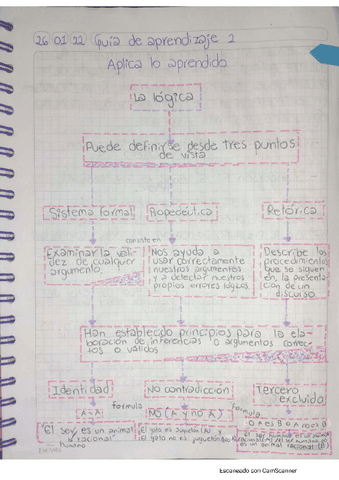 26 01 22 Guía de aprendizaje 2
Aplica lo aprendido
La lógica
Puede definirse desde tres puntos
de vista
Sistema formal
Propedéutica
Retórica
consisten
Examinar la vali
dez de cualquier
argumento.
Nos ayuda a
usar correctamente
nuestros argumentos
y a detectar nuestros
propios errores lógicos.
Describe los
procedimientos
que se siguen
en la presenta
cion de un
discurso
Han establecido principios para la ela-
boración de inferencias o argumentos correc
tos o válidos
Identidad
No contradicción
Tercero
excluido
formula
formula
A=A
NO (A y no A)
O A es B o A no es B
El ser es un animal
racional
humano
El gato es juguetón (A) y
El gato no es juguetón
ser humano es un animal
es un animal racional (B)
Escaneado con CamScanner